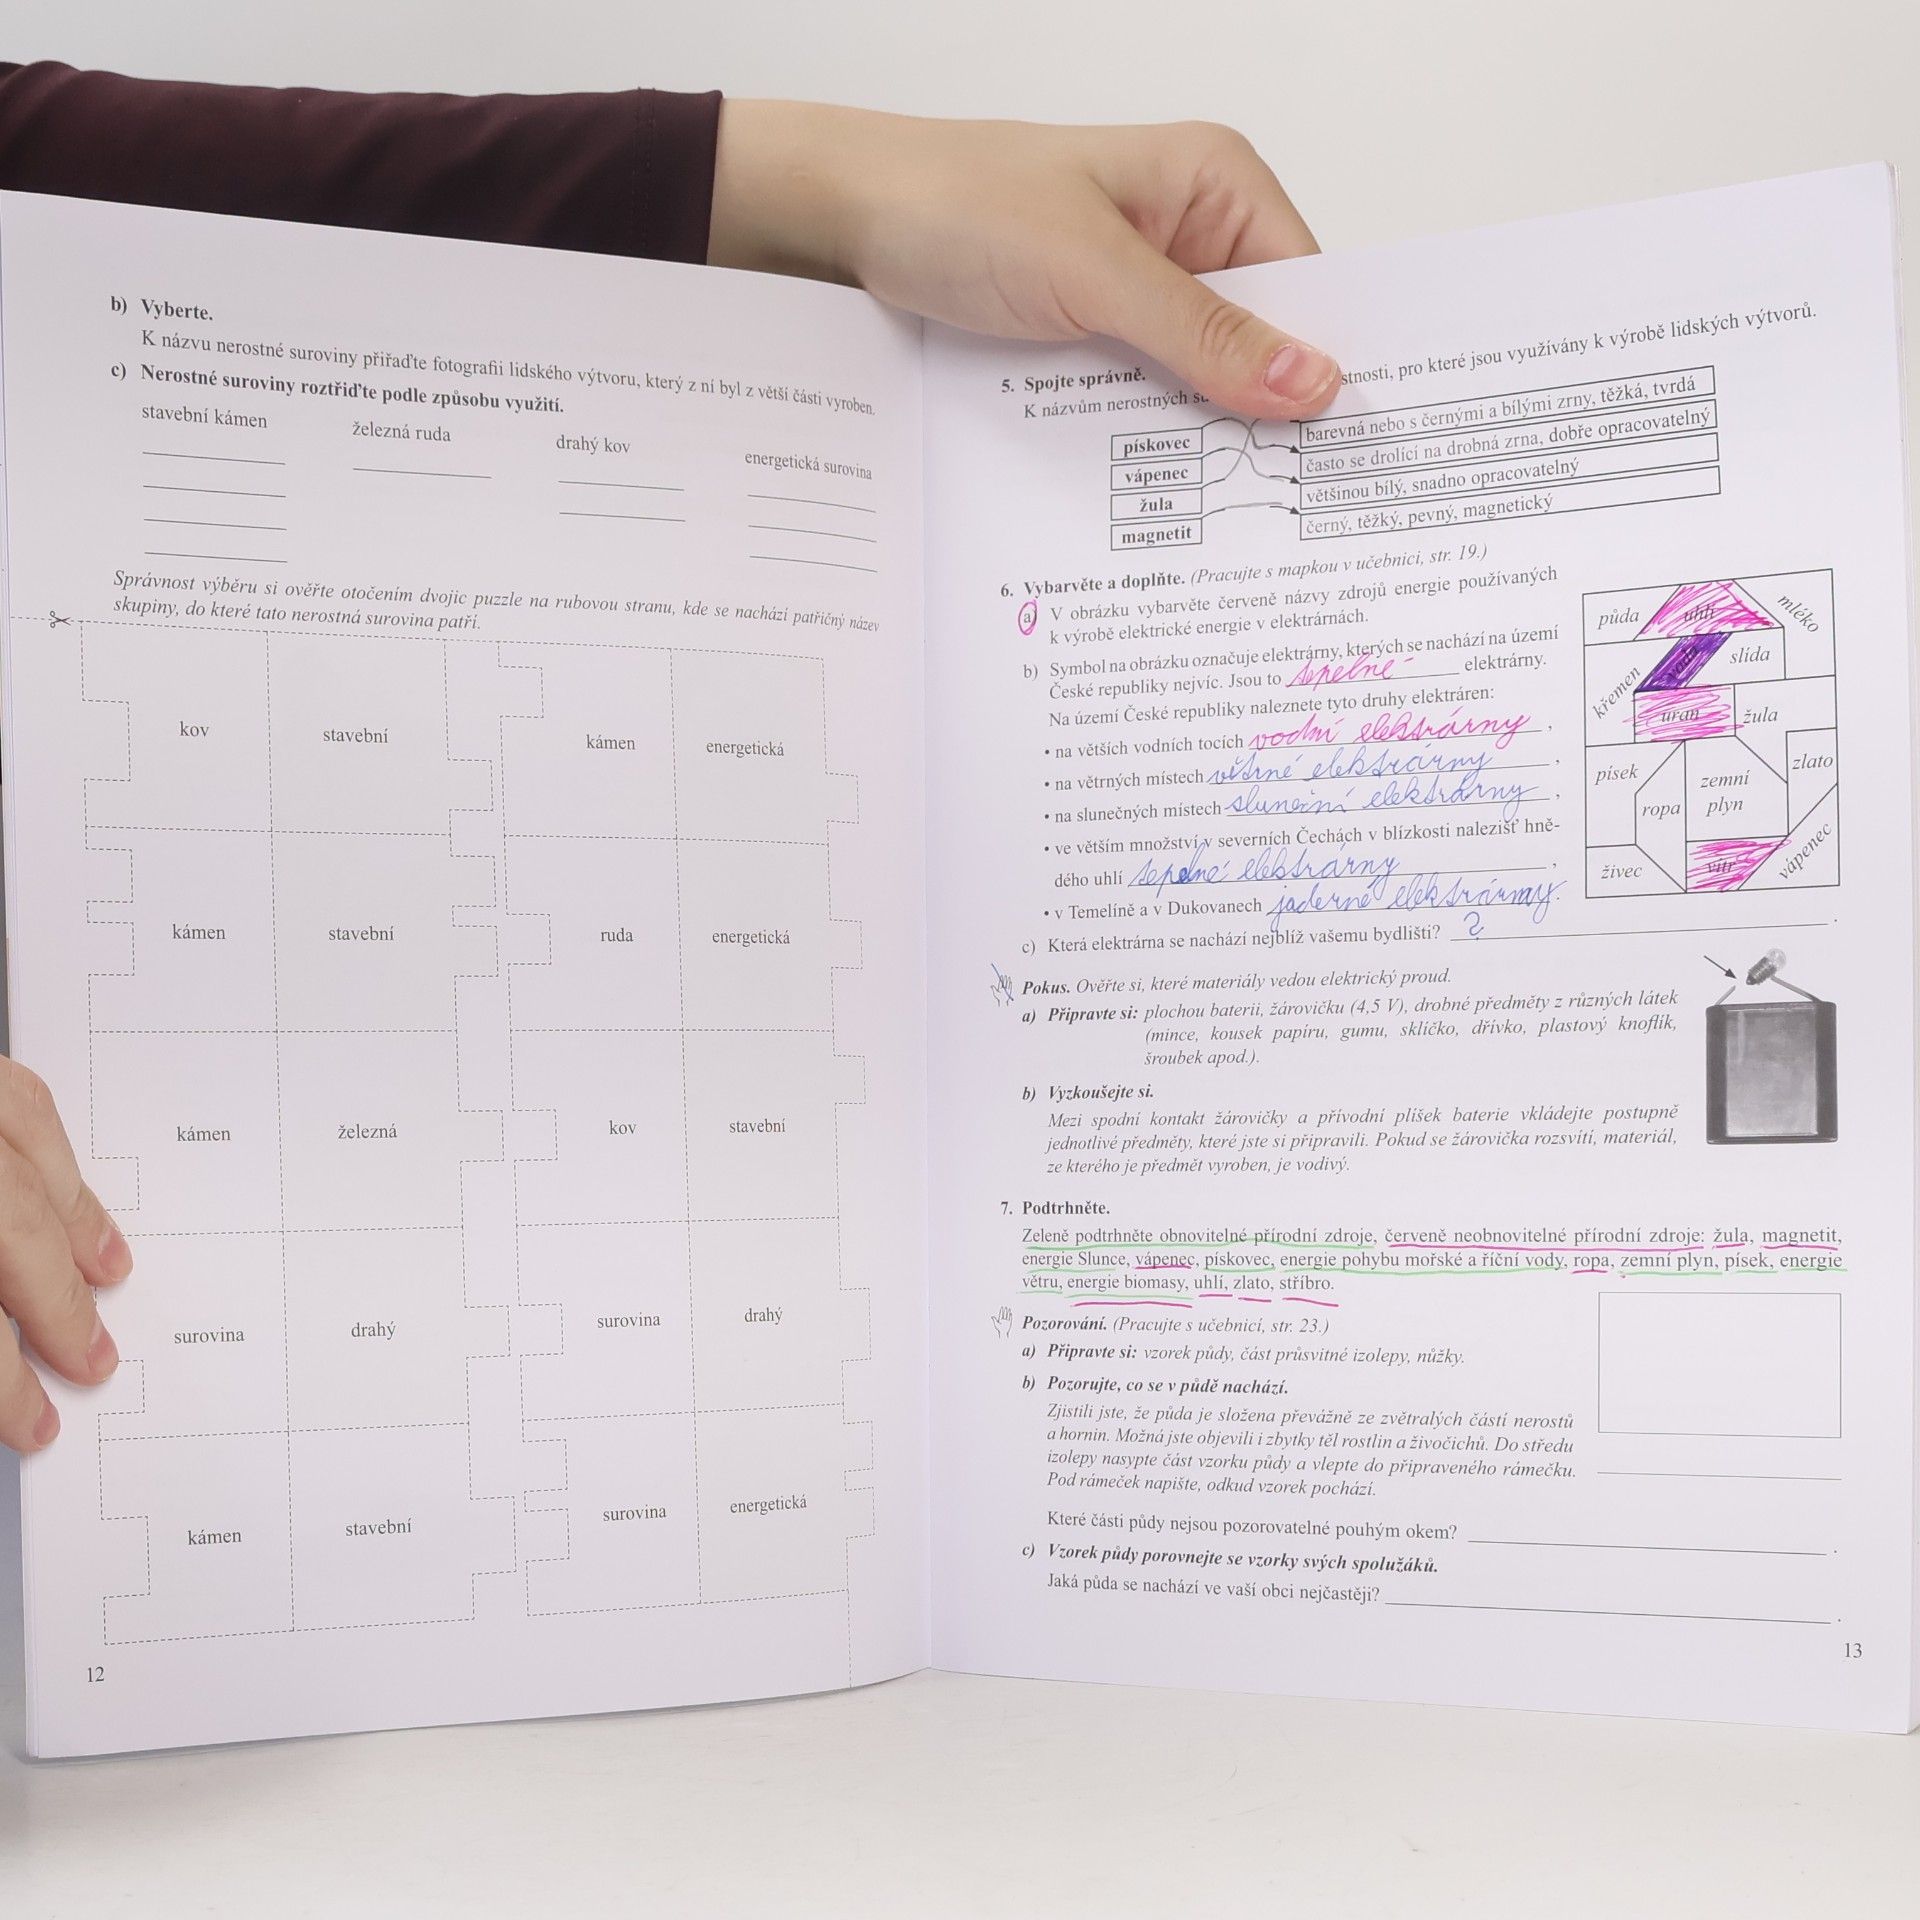 b) Vyberte.
K názvu nerostné suroviny přiřaďte fotografii lidského výtvoru, který z ní byl z větší části vyroben.
c) Nerostné suroviny roztřiďte podle způsobu využití.
stavební kámen železná ruda drahý kov energetická surovina
Správnost výběru si ověřte otočením dvojic puzzle na rubovou stranu, kde se nachází patřičný název
skupiny, do které tato nerostná surovina patří.
kov stavební kámen energetická
kámen stavební ruda energetická
kámen železná kov stavební
surovina drahý surovina drahý
kámen stavební surovina energetická
12
5. Spojte správně.
K názvům nerostných stnosti, pro které jsou využívány k výrobě lidských výtvorů.
pískovec
vápenec
žula
magnetit
barevná nebo s černými a bílými zrny, těžká, tvrdá
často se drolící na drobná zrna, dobře opracovatelný
většinou bílý, snadno opracovatelný
černý, těžký, pevný, magnetický
6. Vybarvěte a doplňte. (Pracujte s mapkou v učebnici, str. 19.)
a) V obrázku vybarvěte červeně názvy zdrojů energie používaných
k výrobě elektrické energie v elektrárnách.
b) Symbol na obrázku označuje elektrárny, kterých se nachází na území
České republiky nejvíc. Jsou to tepelné elektrárny.
Na území České republiky naleznete tyto druhy elektráren:
• na větších vodních tocích vodní elektrárny ,
• na větrných místech větrné elektrárny ,
• na slunečných místech sluneční elektrárny ,
• ve větším množství v severních Čechách v blízkosti nalezišť hně-
dého uhlí tepelné elektrárny ,
• v Temelíně a v Dukovanech jaderné elektrárny.
c) Která elektrárna se nachází nejblíž vašemu bydlišti? ? .
půda uhlí mléko
křemen voda slída
uran žula
písek ropa zemní plyn zlato
živec vítr vápenec
Pokus. Ověřte si, které materiály vedou elektrický proud.
a) Připravte si: plochou baterii, žárovičku (4,5 V), drobné předměty z různých látek
(mince, kousek papíru, gumu, sklíčko, dřívko, plastový knoflík,
šroubek apod.).
b) Vyzkoušejte si.
Mezi spodní kontakt žárovičky a přívodní plíšek baterie vkládejte postupně
jednotlivé předměty, které jste si připravili. Pokud se žárovička rozsvítí, materiál,
ze kterého je předmět vyroben, je vodivý.
7. Podtrhněte.
Zeleně podtrhněte obnovitelné přírodní zdroje, červeně neobnovitelné přírodní zdroje: žula, magnetit,
energie Slunce, vápenec, pískovec, energie pohybu mořské a říční vody, ropa, zemní plyn, písek, energie
větru, energie biomasy, uhlí, zlato, stříbro.
Pozorování. (Pracujte s učebnicí, str. 23.)
a) Připravte si: vzorek půdy, část průsvitné izolepy, nůžky.
b) Pozorujte, co se v půdě nachází.
Zjistili jste, že půda je složena převážně ze zvětralých částí nerostů
a hornin. Možná jste objevili i zbytky těl rostlin a živočichů. Do středu
izolepy nasypte část vzorku půdy a vlepte do připraveného rámečku.
Pod rámeček napište, odkud vzorek pochází.
Které části půdy nejsou pozorovatelné pouhým okem? .
c) Vzorek půdy porovnejte se vzorky svých spolužáků.
Jaká půda se nachází ve vaší obci nejčastěji? .
13